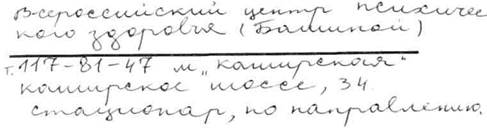 Всероссийский центр психичес
кого здоровья (Башиной)
т. 117-81-47 м „Каширская“
Каширское шоссе, 34
стационар, по направлению.